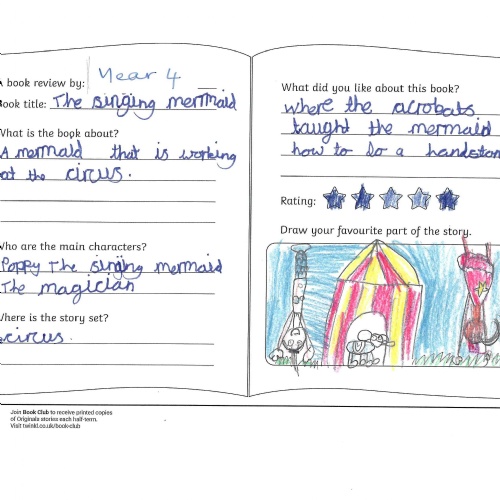 book review by: Year 4
Book title: The singing mermaid
What is the book about?
A mermaid that is working
at the circus.
Who are the main characters?
Poppy The singing mermaid
The magician
Where is the story set?
circus.
Join Book Club to receive printed copies
of Originals stories each half-term.
Visit twinkl.co.uk/book-club
What did you like about this book?
where the acrobats
taught the mermaid
how to do a handstan
Rating:
Draw your favourite part of the story.